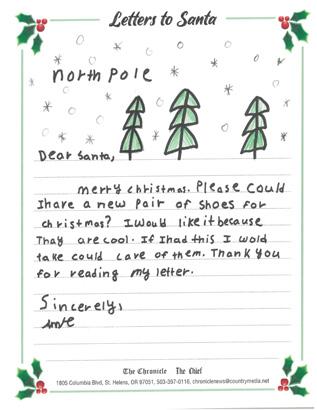 Letters to Santa
North Pole
Dear Santa,
merry christmas. Please Could
I have a new Pair of Shoes For
christmas? I Would like it because
Thay are cool. If I had this I wold
take could care of them. Thank You
for reading my letter.
Sincerely,
The Chronicle The Chief
1805 Columbia Blvd, St. Helens, OR 97051, 503-397-0116, chroniclenews@countrymedia.net